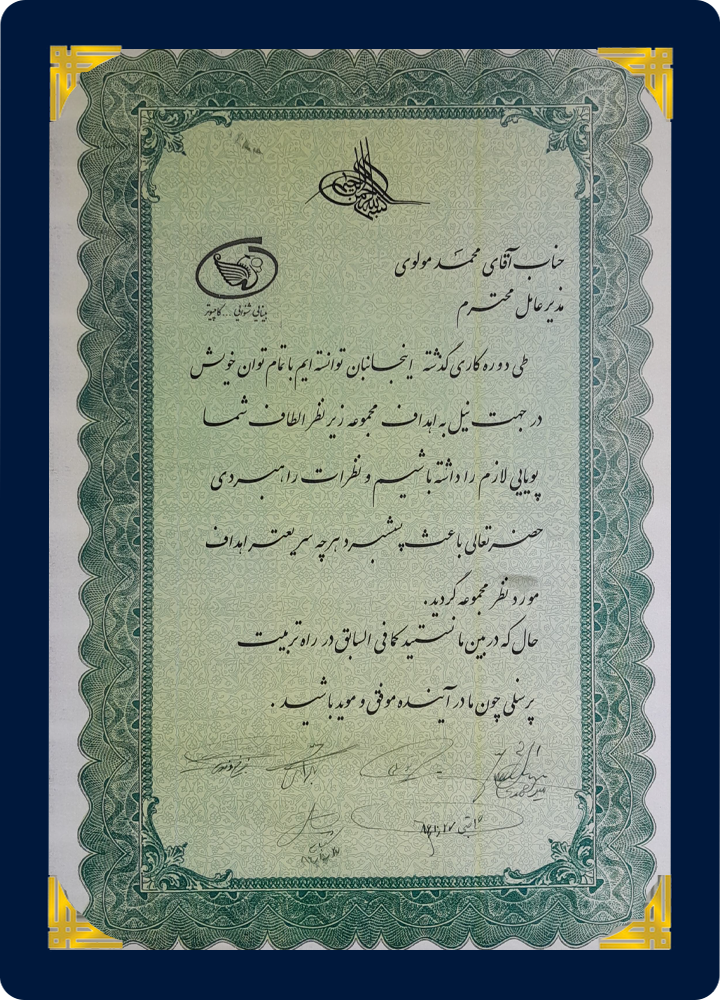 بسم الله الرحمن الرحیم
جناب آقای محمد مولوی
مدیر عامل محترم
طی دوره کاری گذشته اینجانبان توانسته ایم با تمام توان خویش
در جهت نیل به اهداف مجموعه زیر نظر الطاف شما
پویایی لازم را داشته باشیم و نظرات راهبردی
حضرتعالی باعث پیشبرد هرچه سریعتر اهداف
مورد نظر مجموعه گردید.
حال که در بین ما نیستید کمافی السابق در راه تربیت
پرسنلی چون ما در آینده موفق و موید باشید.